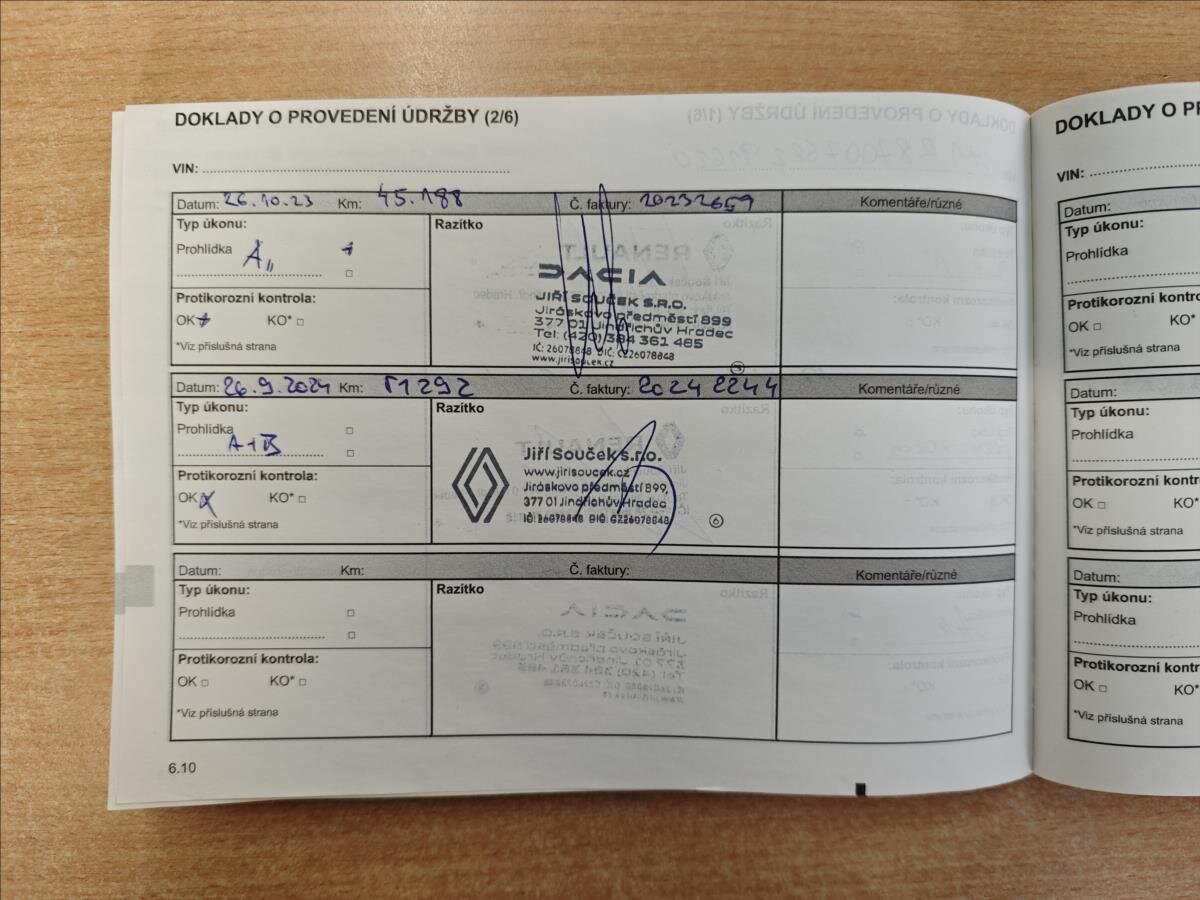 DOKLADY O PROVEDENÍ ÚDRŽBY (2/6)
VIN:
Datum: 26.10.23 Km: 45.188 Č. faktury: 20232659 Komentáře/různé
Typ úkonu: Razítko
Prohlídka A
DACIA
JIŘÍ SOUČEK S.R.O.
Jiráskovo předměstí 899
377 01 Jindřichův Hradec
Tel: (420) 384 361 485
IČ: 26078848 DIČ: CZ26078848
www.jirisoucek.cz
Protikorozní kontrola:
OK KO*
*Viz příslušná strana
Datum: 26.9.2024 Km: 51292 Č. faktury: 2024 2244 Komentáře/různé
Typ úkonu: Razítko
Prohlídka
A+B
Jiří Souček s.r.o.
www.jirisoucek.cz
Jiráskovo předměstí 899,
377 01 Jindřichův Hradec
IČ: 26078848 DIČ: CZ26078848
6
Protikorozní kontrola:
OK KO*
*Viz příslušná strana
Datum: Km: Č. faktury: Komentáře/různé
Typ úkonu: Razítko
Prohlídka
Protikorozní kontrola:
OK KO*
*Viz příslušná strana
6.10
DOKLADY O PR
VIN:
Datum:
Typ úkonu:
Prohlídka
Protikorozní
OK KO*
*Viz příslušná
Datum:
Typ úkonu:
Prohlídka
Protikorozní
OK KO*
*Viz příslušná
Datum:
Typ úkonu:
Prohlídka
Protikorozní
OK KO*
*Viz příslušná